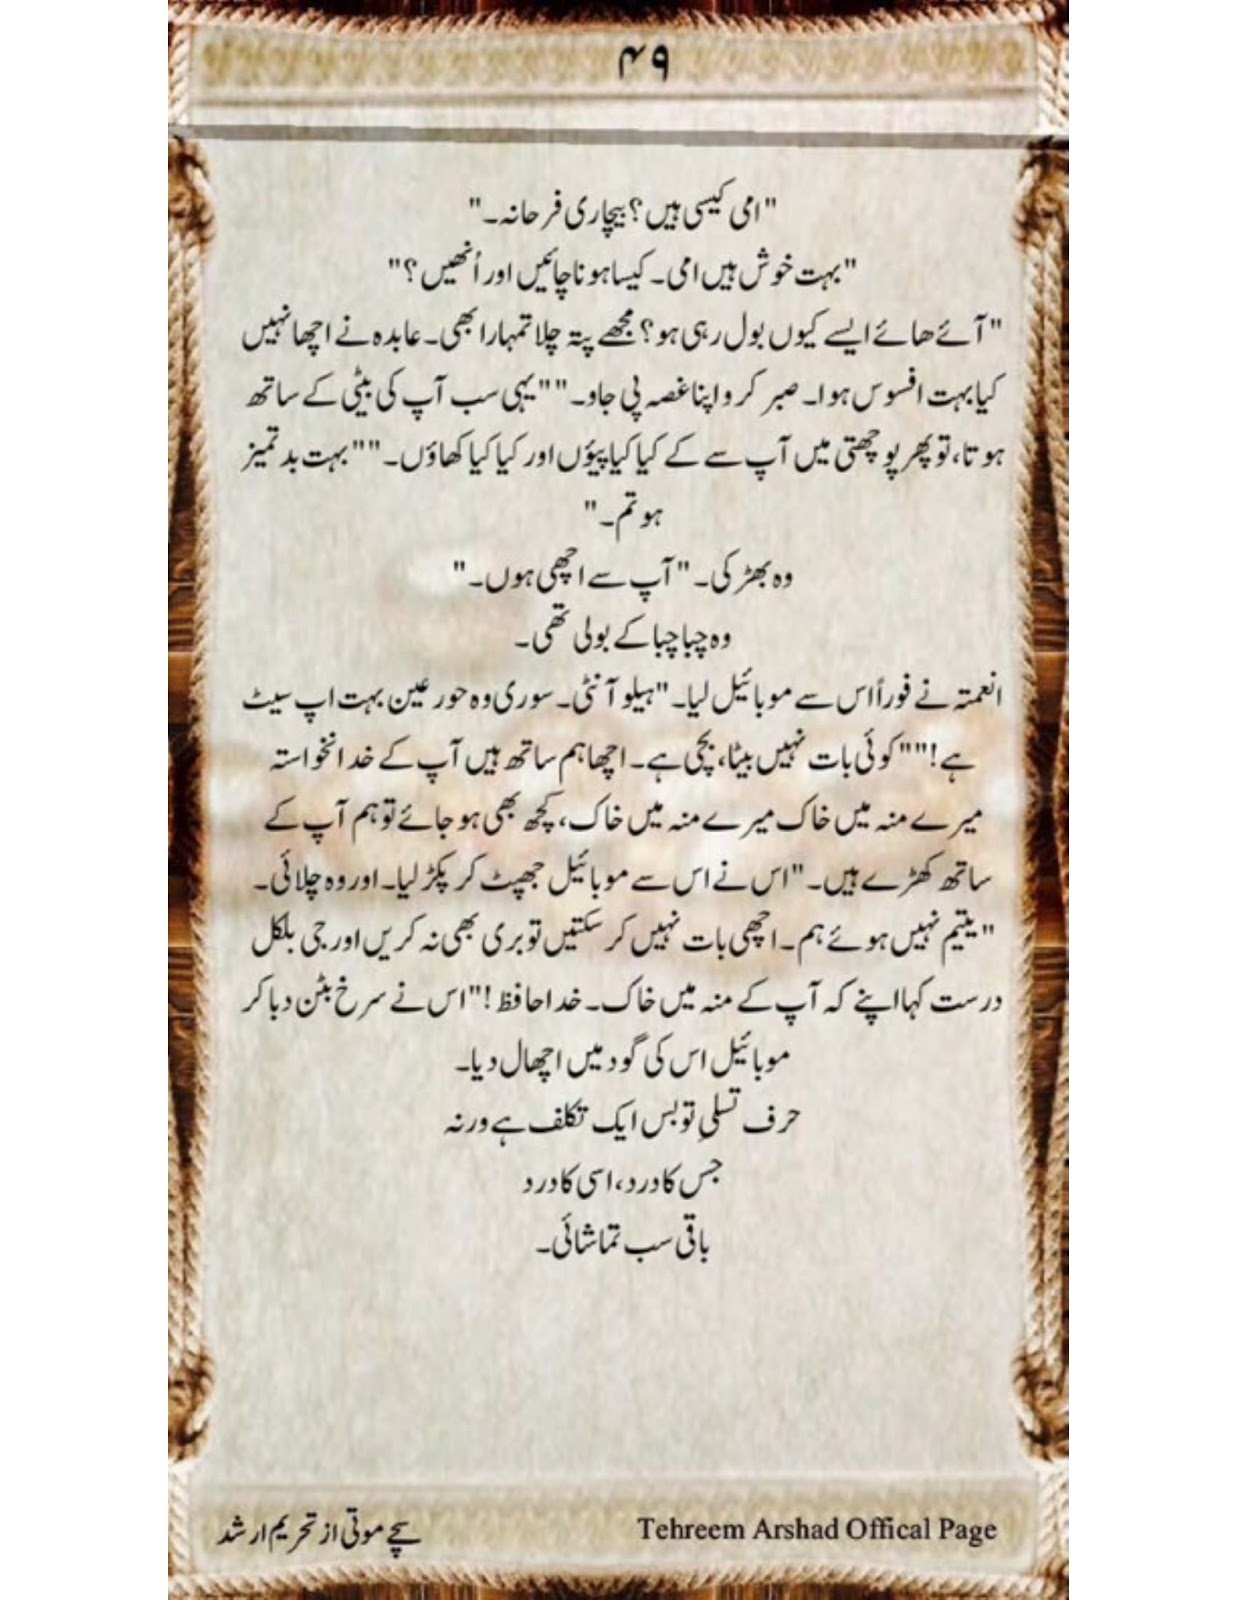 ۴۹
"امی کیسی ہیں؟ بیچاری فرحانہ۔"
"بہت خوش ہیں امی۔ کیسا ہونا چائیں اور اُنھیں؟"
"آئے ھائے ایسے کیوں بول رہی ہو؟ مجھے پتہ چلا تمہارا بھی۔ عابدہ نے اچھا نہیں
کیا بہت افسوس ہوا۔ صبر کرو اپنا غصہ پی جاو۔" "یہی سب آپ کی بیٹی کے ساتھ
ہوتا، تو پھر پوچھتی میں آپ سے کے کیا کیا پیؤں اور کیا کیا کھاؤں۔" "بہت بدتمیز
ہو تم۔"
وہ بھڑکی۔ "آپ سے اچھی ہوں۔"
وہ چبا چبا کے بولی تھی۔
انعمتہ نے فوراً اس سے موبائیل لیا۔ "ہیلو آنٹی۔ سوری وہ حورعین بہت اپ سیٹ
ہے!" "کوئی بات نہیں بیٹا، بچی ہے۔ اچھا ہم ساتھ ہیں آپ کے خدانخواستہ
میرے منہ میں خاک میرے منہ میں خاک، کچھ بھی ہو جائے تو ہم آپ کے
ساتھ کھڑے ہیں۔" اس نے اس سے موبائیل جھپٹ کر پکڑ لیا۔ اور وہ چلائی۔
"یتیم نہیں ہوئے ہم۔ اچھی بات نہیں کر سکتیں تو بری بھی نہ کریں اور جی بلکل
درست کہا اپنے کہ آپ کے منہ میں خاک۔ خدا حافظ!" اس نے سرخ بٹن دبا کر
موبائیل اس کی گود میں اچھال دیا۔
حرف تسلیِ تو بس ایک تکلف ہے ورنہ
جس کا درد، اسی کا درد
باقی سب تماشائی۔
سچے موتی از تحریم ارشد
Tehreem Arshad Offical Page